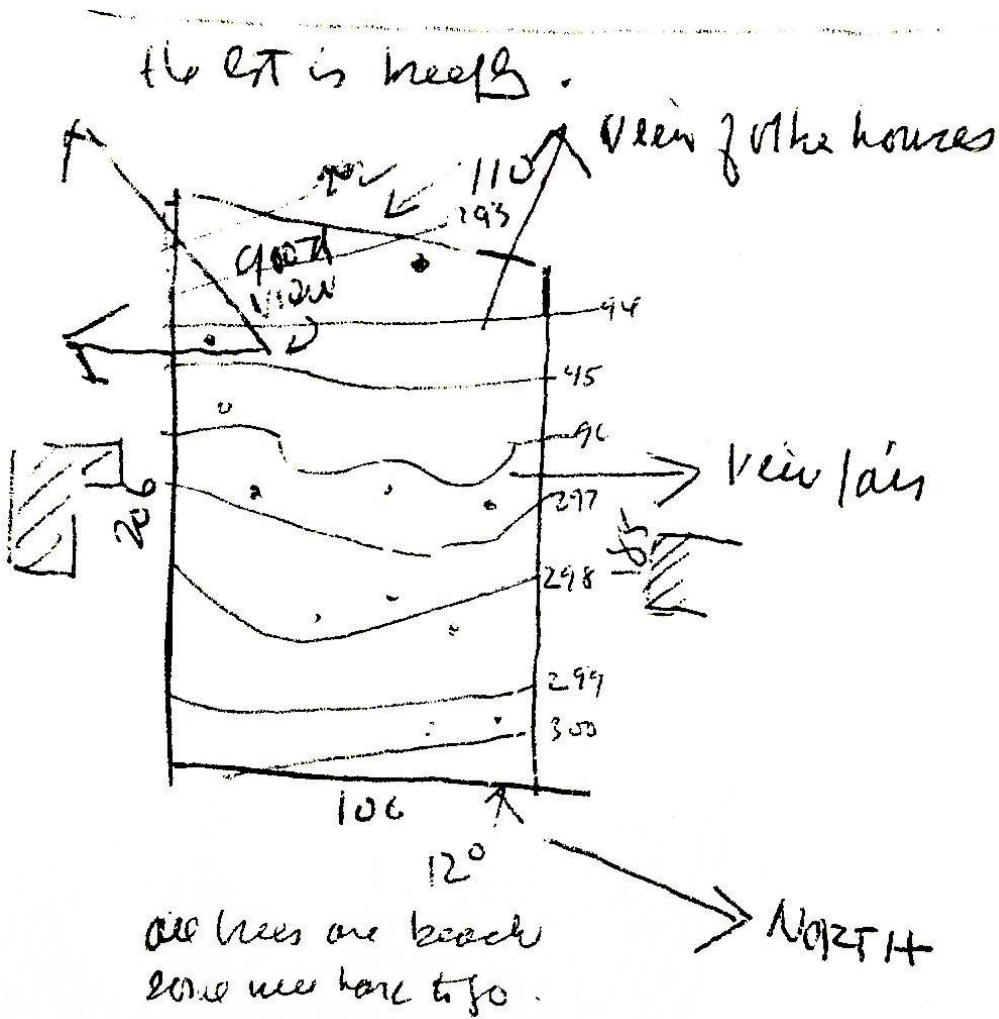 the lot is
View of other houses
110
293
good
view
94
95
96
View
206
297
298
299
300
106
12°
NORTH
all trees are beach
some will have to go.